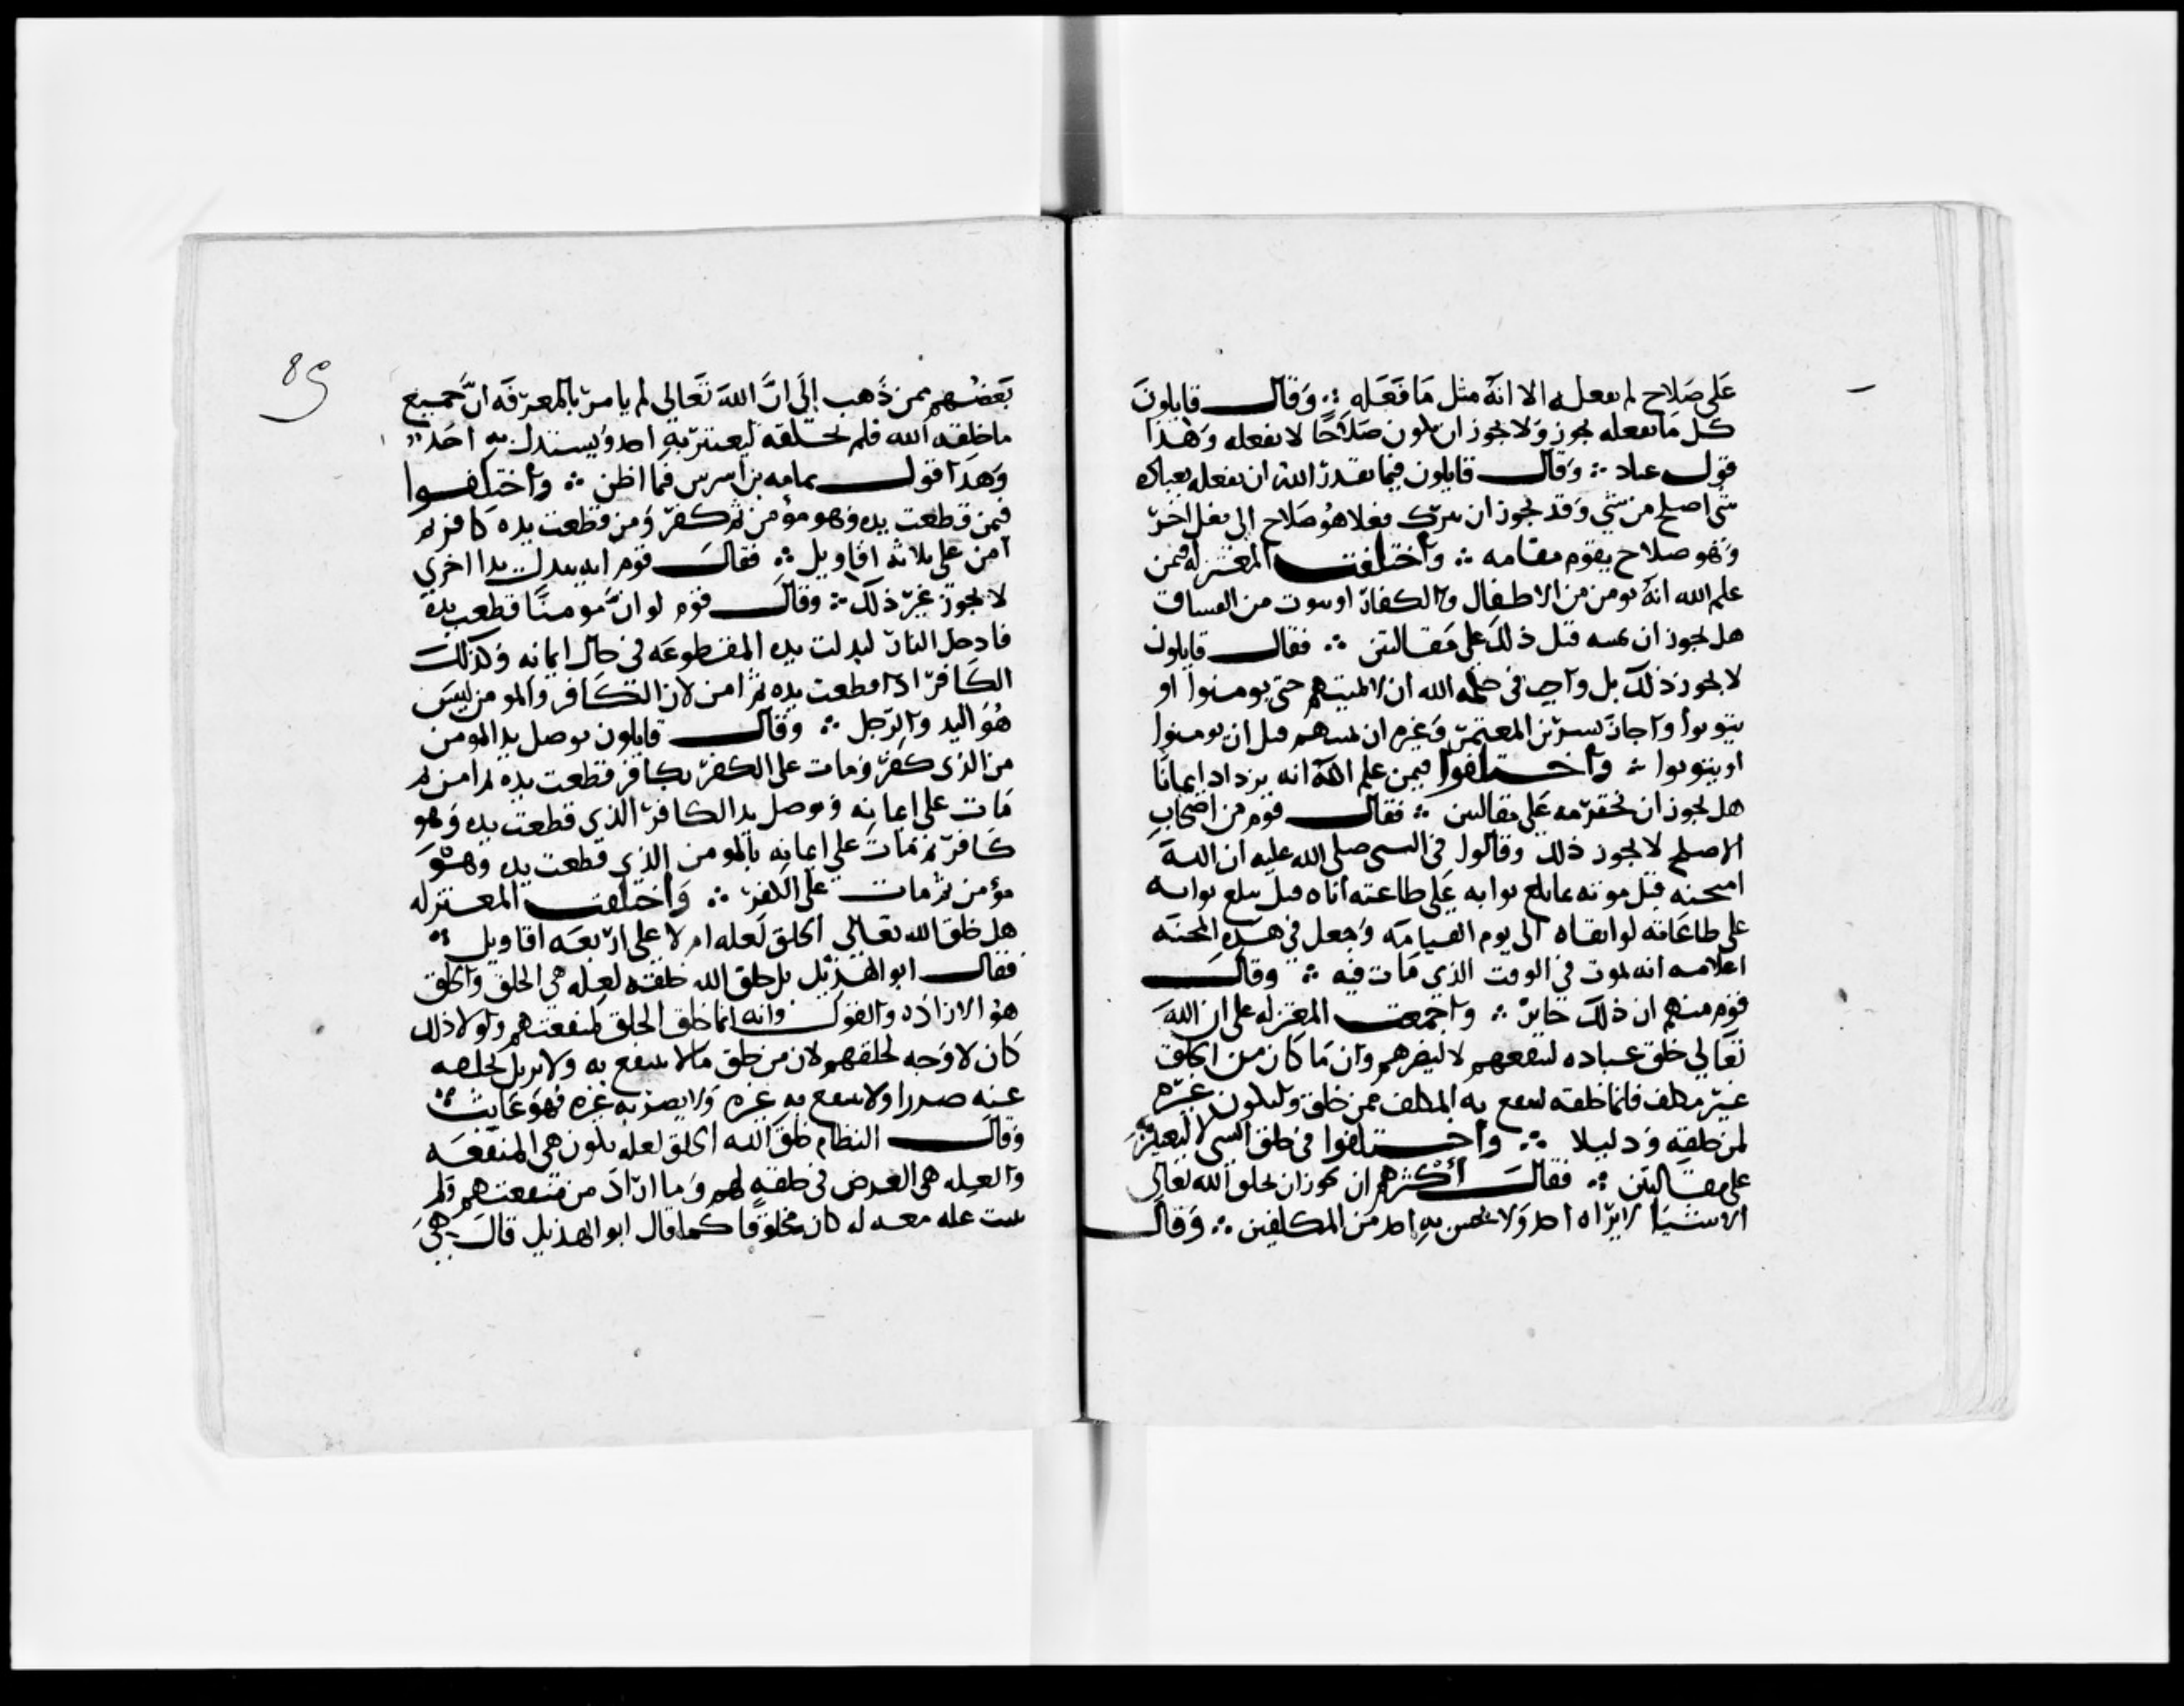 على صلاح لم يفعله الا انه مثل ما فعله ∴ وقال قايلون
كل ما يفعله يجوز ولا يجوز ان يكون صلاحا لا يفعله وهذا
قول عباد ∴ وقال قايلون فيما يقدر الله ان يفعله بعباده
شي اصلح من شي وقد يجوز ان يترك فعلا هو صلاح الى فعل اخر
وهو صلاح يقوم مقامه ∴ واختلفت المعتزله فيمن
علم الله انه يومن من الاطفال والكفار او يتوب من الفساق
هل يجوز ان يميته قبل ذلك على مقالتين ∴ فقال قايلون
لا يجوز ذلك بل واجب في حكمه الله ان لا يميتهم حتى يومنوا او
يتوبوا واجاز بشر بن المعتمر وغيره ان يميتهم قبل ان يومنوا
او يتوبوا ∴ واختلفوا فيمن علم الله انه يزداد ايمانا
هل يجوز ان يخترمه على مقالتين ∴ فقال قوم من اصحاب
الاصلح لا يجوز ذلك وقالوا في النبي صلى الله عليه ان الله
امتحنه قبل موته بما بلغ ثوابه على طاعته اياه قبل مبلغ ثوابه
على طاعاته لو ابقاه الى يوم القيامه وجعل في هذه المحنه
اعلامه انه يموت في الوقت الذي مات فيه ∴ وقال
قوم منهم ان ذلك جايز ∴ واجمعت المعتزله على ان الله
تعالى خلق عباده لينفعهم لا ليضرهم وان ما كان من الخلق
غير مكلف فانما خلقه لينتفع به المكلف ممن خلق وليكون عبره
لمن خلقه ودليلا ∴ واختلفوا في خلق الشي لا ليعتبر به
على مقالتين ∴ فقال اكثرهم ان يجوز ان يخلق الله تعالى
الاشيا لا يراه احد ولا يحس به احد من المكلفين ∴ وقال
89
بعضهم ممن ذهب الى ان الله تعالى لم يامر بالمعرفه ان جميع
ما خلقه الله فلم يخلقه ليعتبر به احد ويستدل به احد
وهذا قول ثمامه بن اشرس فيما اظن ∴ واختلفوا
فيمن قطعت يده وهو مؤمن ثم كفر ومن قطعت يده كافر ثم
امن على ثلاثه اقاويل ∴ فقال قوم انه يبدل يدا اخرى
لا يجوز غير ذلك ∴ وقال قوم لو ان مومنا قطعت يده
فادخل النار لبدلت يده المقطوعه في حال ايمانه وكذلك
الكافر اذا قطعت يده ثم امن لان الكافر والمومن ليس
هو اليد والرجل ∴ وقال قايلون توصل يد المومن
من الذي كفر ومات على الكفر بكافر قطعت يده ثم امن ثم
مات على ايمانه وتوصل يد الكافر الذي قطعت يده وهو
كافر ثم مات على ايمانه بالمومن الذي قطعت يده وهو
مؤمن ثم مات على الكفر ∴ واختلفت المعتزله
هل خلق الله تعالى الخلق لعله ام لا على اربعه اقاويل ∴
فقال ابو الهذيل بل خلق الله خلقه لعله هي الخلق والخلق
هو الاراده والقول وانه انما خلق الخلق لمنفعتهم ولولا ذلك
كان لا وجه لخلقهم لان من خلق ما لا ينتفع به ولا يزيل بخلقه
عنه ضررا ولا ينتفع به غيره ولا يضر به غيره فهو عابث ∴
وقال النظام خلق الله الخلق لعله يكون هي المنفعه
والعله هي الغرض في خلقه لهم وما اراد من منفعتهم ولم
يثبت عله معه له كان مخلوقا كما قال ابو الهذيل قال هي